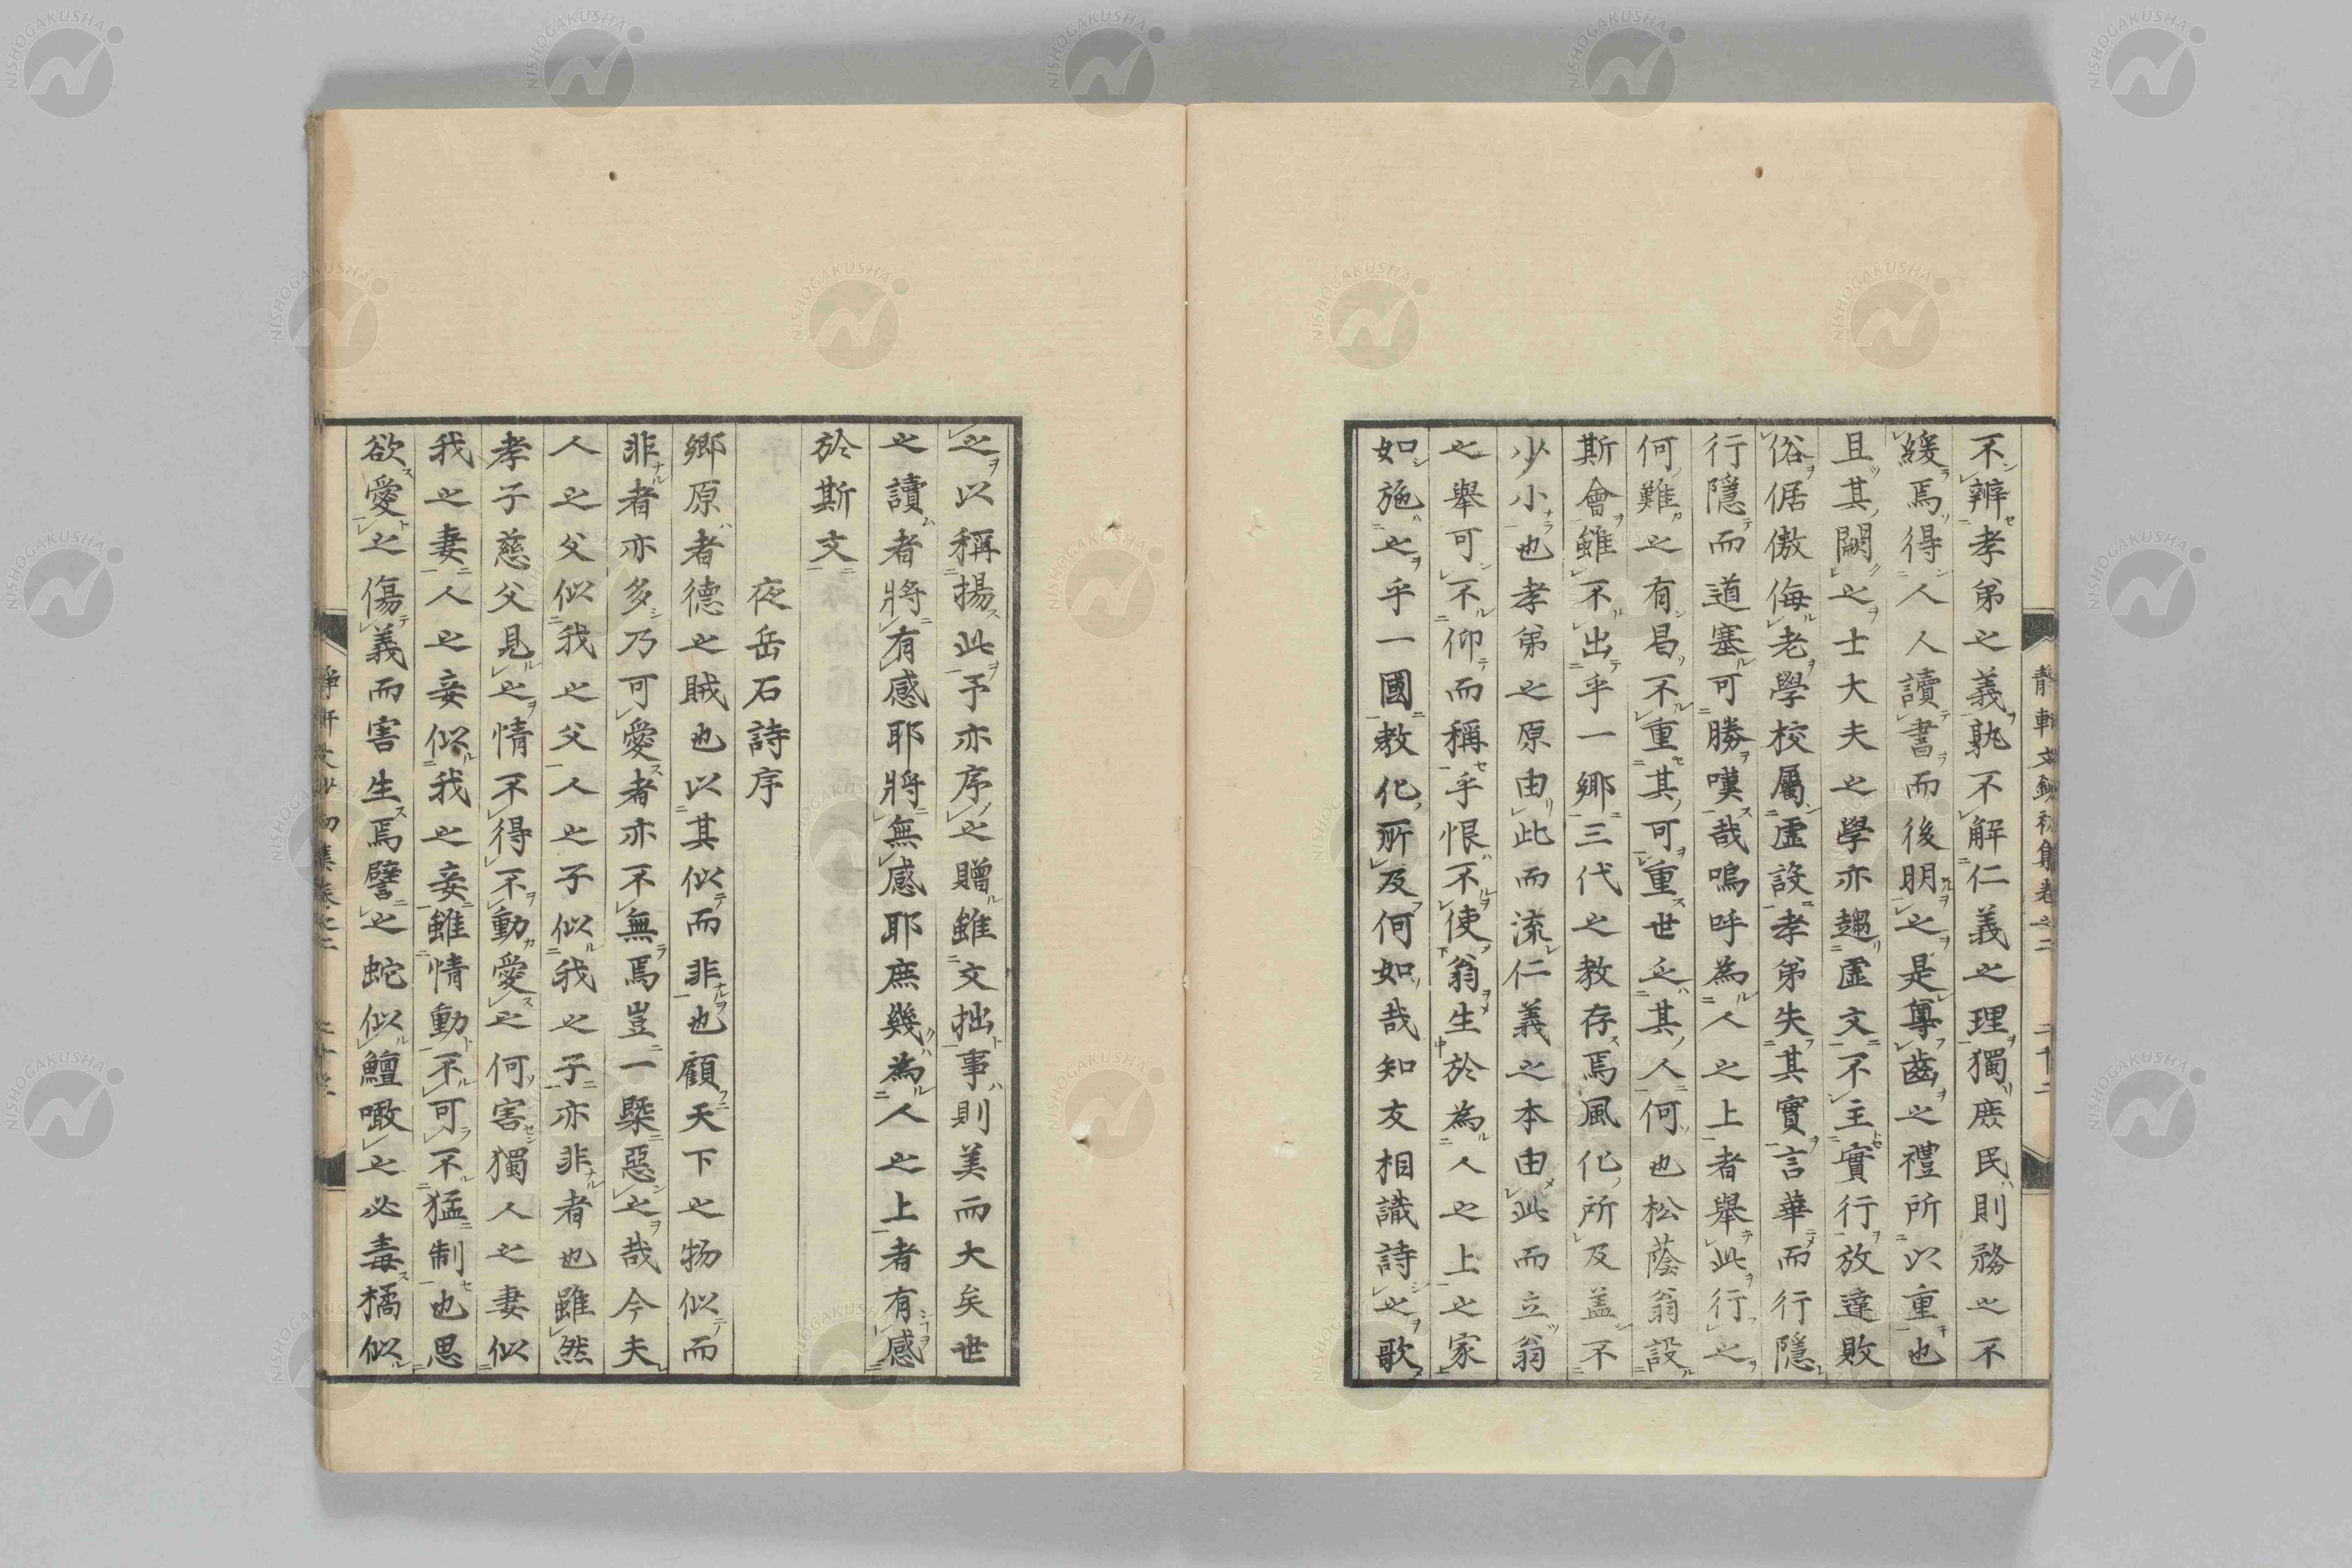 不辨孝弟之義孰不解仁義之理獨庶民則務之不
緩焉得人人讀書而後明之是尊齒之禮所以重也
且其闕之士大夫之學亦趨虛文不主實行放達敗
俗倨傲侮老學校屬虛設孝弟失其實言華而行隱
行隱而道塞可勝嘆哉嗚呼為人之上者舉此行之
何難之有曷不重其可重世乏其人何也松蔭翁設
斯會雖不出乎一鄉三代之教存焉風化所及蓋不
少小也孝弟之原由此而流仁義之本由此而立翁
之舉可不仰而稱乎恨不使翁生於為人之上之家
如施之乎一國教化所及何如哉知友相識詩之歌
之以稱揚此予亦序之贈雖文拙事則美而大矣世
之讀者將有感耶將無感耶庶幾為人之上者有感
於斯文
夜岳石詩序
鄉原者德之賊也以其似而非也顧天下之物似而
非者亦多乃可愛者亦不無焉豈一槩惡之哉今夫
人之父似我之父人之子似我之子亦非者也雖然
孝子慈父見之情不得不動愛之何害獨人之妻似
我之妻人之妾似我之妾雖情動不可不猛制也思
欲愛之傷義而害生焉譬之蛇似鱣噉之必毒橘似
靜軒文鈔初集卷之二 二十二
NISHOGAKUSHA